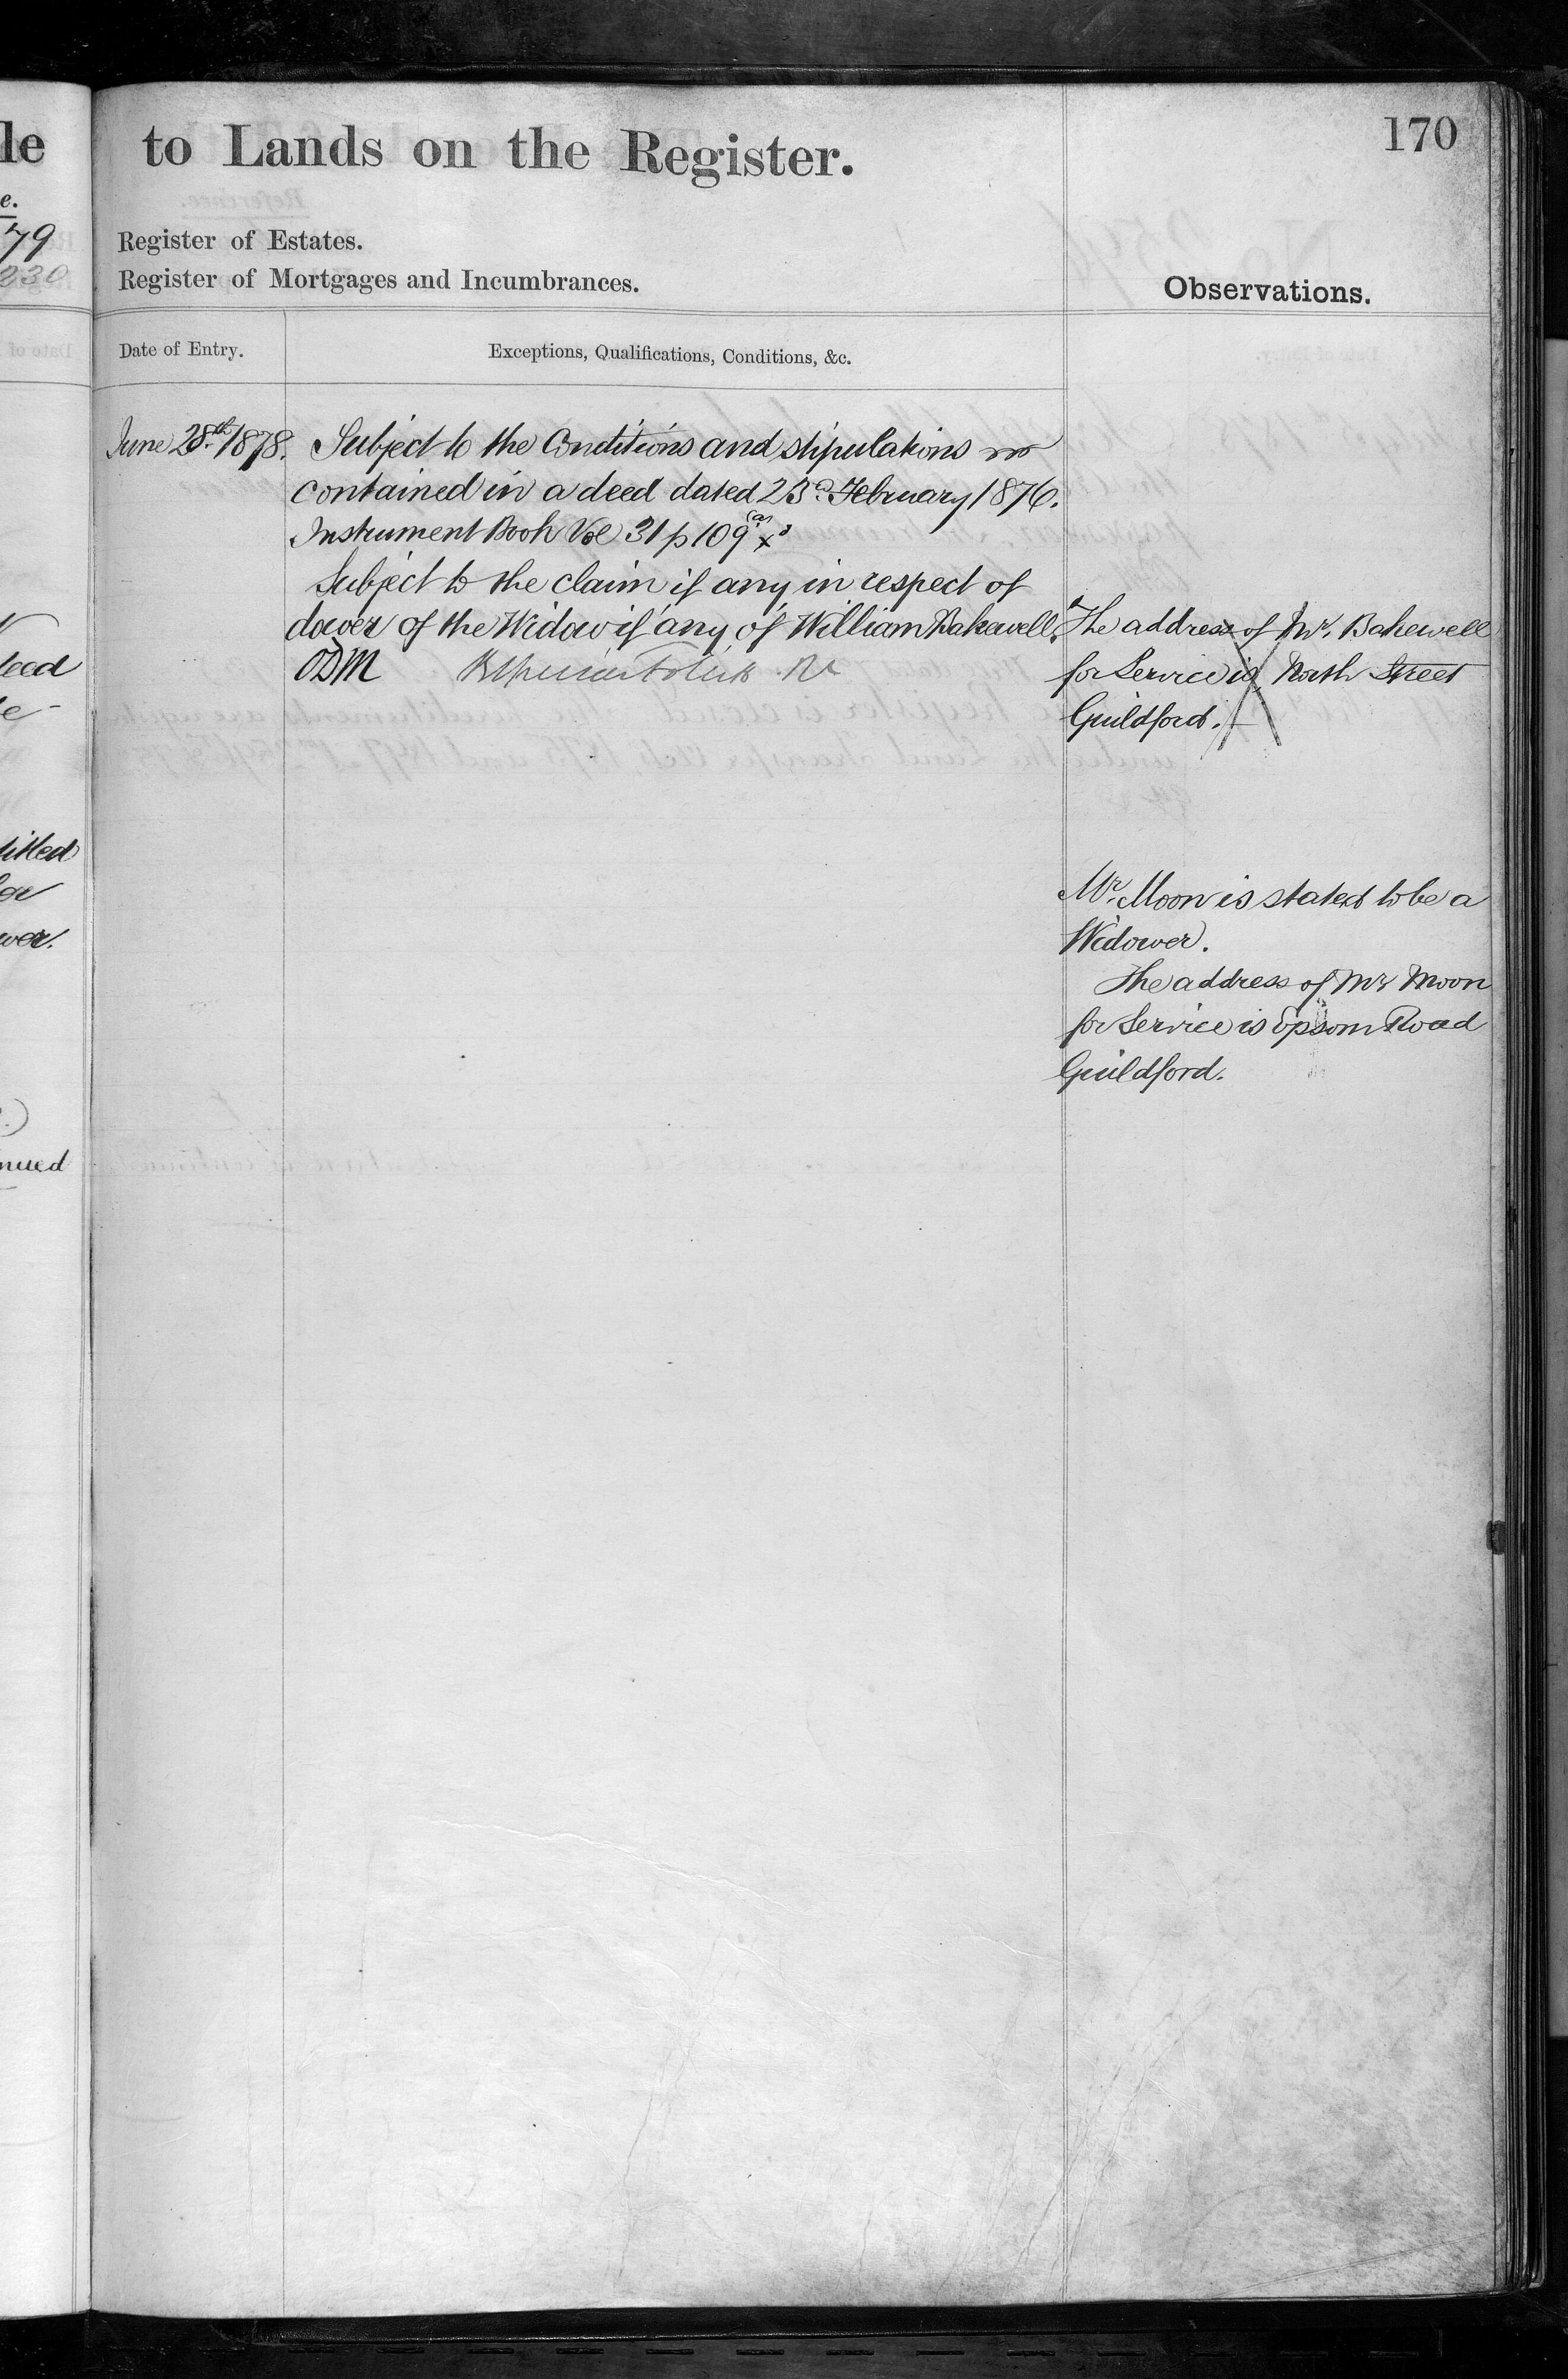 le
e.
79
230
to Lands on the Register.
170
Register of Estates.
Register of Mortgages and Incumbrances.
Observations.
Date of Entry.
Exceptions, Qualifications, Conditions, &c.
June 28th 1878.
Subject to the Conditions and stipulations
contained in a deed dated 23d February 1876.
Instrument Book Vol 31 p 109 (a) x
Subject to the claim if any in respect of
dower of the Widow if any of William Bakewell.
ODM
The address of Mr. Bakewell
for Service is North Street
Guildford.
Mr. Moon is stated to be a
Widower.
The address of Mr Moon
for Service is Epsom Road
Guildford.
deed
titled
or
wer.
nued